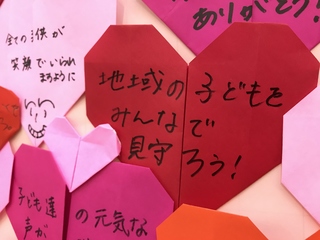 ありがとう!
全ての子供が
笑顔でいられ
ますように
地域の子どもを
みんなで
見守ろう!
子ども達
声が
の元気な